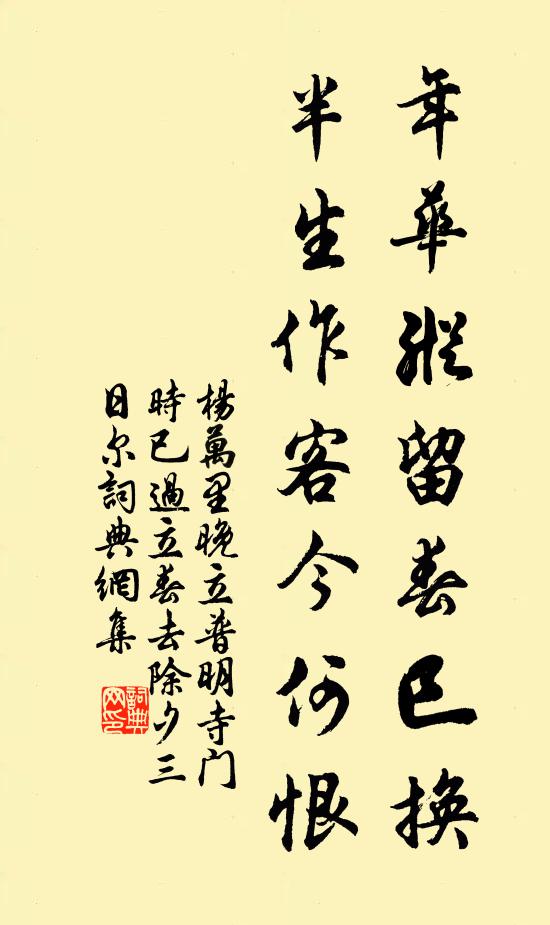 年華縱留春已換
半生作客今何恨
楊萬里晚立普明寺門
時已過立春去除夕三
日尔詞典網集
詞典网印